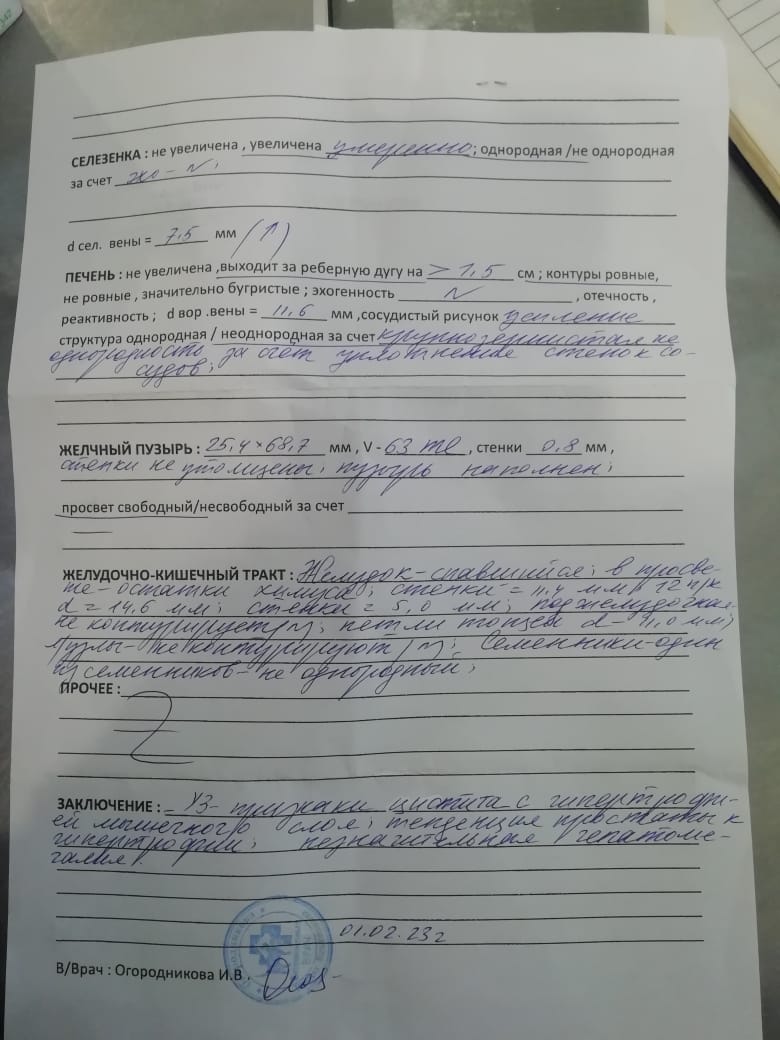 СЕЛЕЗЕНКА : не увеличена , увеличена умеренно ; однородная /не однородная
за счет эхо - N ;
d сел. вены = 7,5 мм (↑)
ПЕЧЕНЬ : не увеличена ,выходит за реберную дугу на > 1,5 см ; контуры ровные,
не ровные , значительно бугристые ; эхогенность N , отечность ,
реактивность ; d вор .вены = 11,6 мм ,сосудистый рисунок усиление
структура однородная / неоднородная за счет крупнозернистая не
однородность за счет уплотнение стенок со-
судов;
ЖЕЛЧНЫЙ ПУЗЫРЬ : 25,4 × 68,7 мм , V - 63 ml , стенки 0,8 мм ,
стенки не утолщены; пузырь наполнен;
просвет свободный/несвободный за счет
—
ЖЕЛУДОЧНО-КИШЕЧНЫЙ ТРАКТ : Желудок - спавшийся; в просве-
те - остатки химуса; стенки = мм; 12 п/к
d = 14,6 мм; стенки = 5,0 мм; поджелудочная-
не контурирует/N; петли тощей d - 11,0 мм;
л/узлы - не контурируют/N; Семенники - один
из семенников - не однородный;
ПРОЧЕЕ :
ЗАКЛЮЧЕНИЕ : УЗ - признаки цистита с гипертрофи-
ей мышечного слоя; тенденция простаты к
гипертрофии; незначительная гепатоме-
галия
01.02.23г
В/Врач : Огородникова И.В .